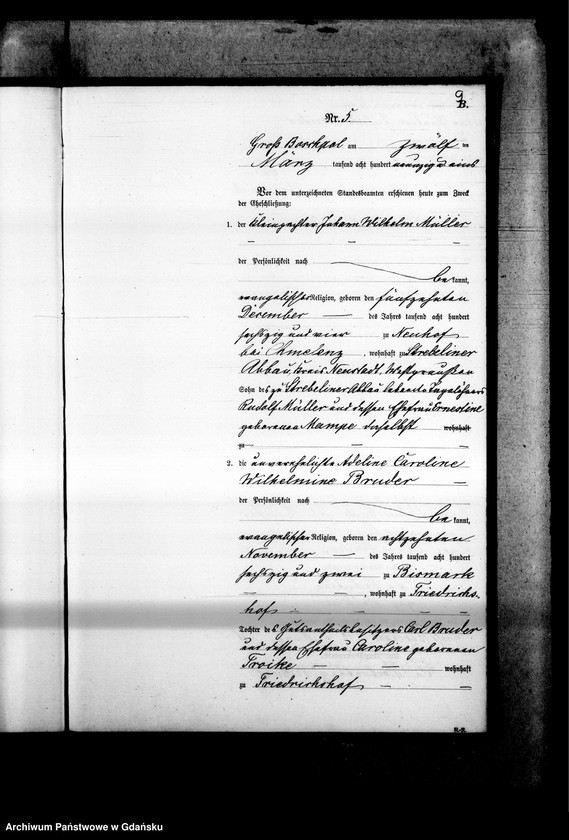 B.
Nr. 5
Groß Boschpol am zwölf ten
März tausend acht hundert neunzig u eins
Vor dem unterzeichneten Standesbeamten erschienen heute zum Zweck
der Eheschließung:
1. der Kleinpächter Johann Wilhelm Müller
der Persönlichkeit nach
be kannt,
evangelischer Religion, geboren den fünfzehnten
December des Jahres tausend acht hundert
sechszig und vier zu Neuhof
bei Chmelenz, wohnhaft zu Strebeliner
Abbau, Kreis Neustadt, Westpreußen
Sohn des zu Strebeliner Abbau lebenden Tagelöhners
Rudolf Müller und dessen Ehefrau Ernestine
geborenen Mampe daselbst wohnhaft
zu
2. die unverehelichte Adeline Caroline
Wilhelmine Bruder
der Persönlichkeit nach
be kannt,
evangelischer Religion, geboren den achtzehnten
November des Jahres tausend acht hundert
sechszig und zwei zu Bismark
, wohnhaft zu Friedrichs-
hof
Tochter des Gutsantheilsbesitzers Carl Bruder
und dessen Ehefrau Caroline geborenen
Troike wohnhaft
zu Friedrichshof
Archiwum Państwowe w Gdańsku